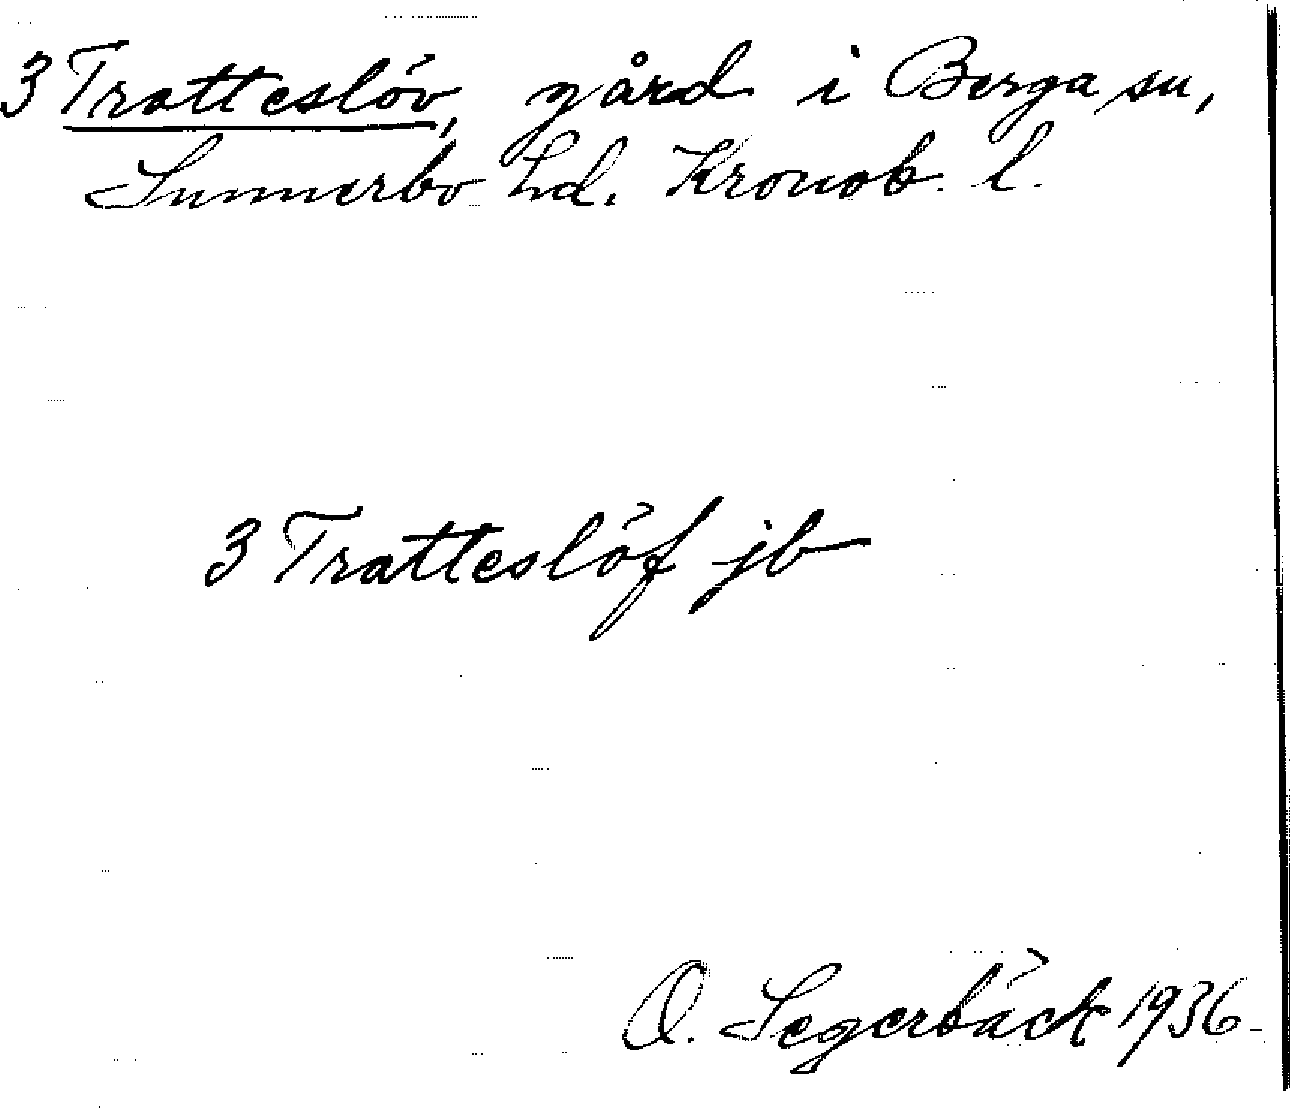 3 Tratteslöv, gård i Berga sn,
Sunnerbo hd. Kronob. l.
3 Tratteslöf jb
O. Segerbäck 1936